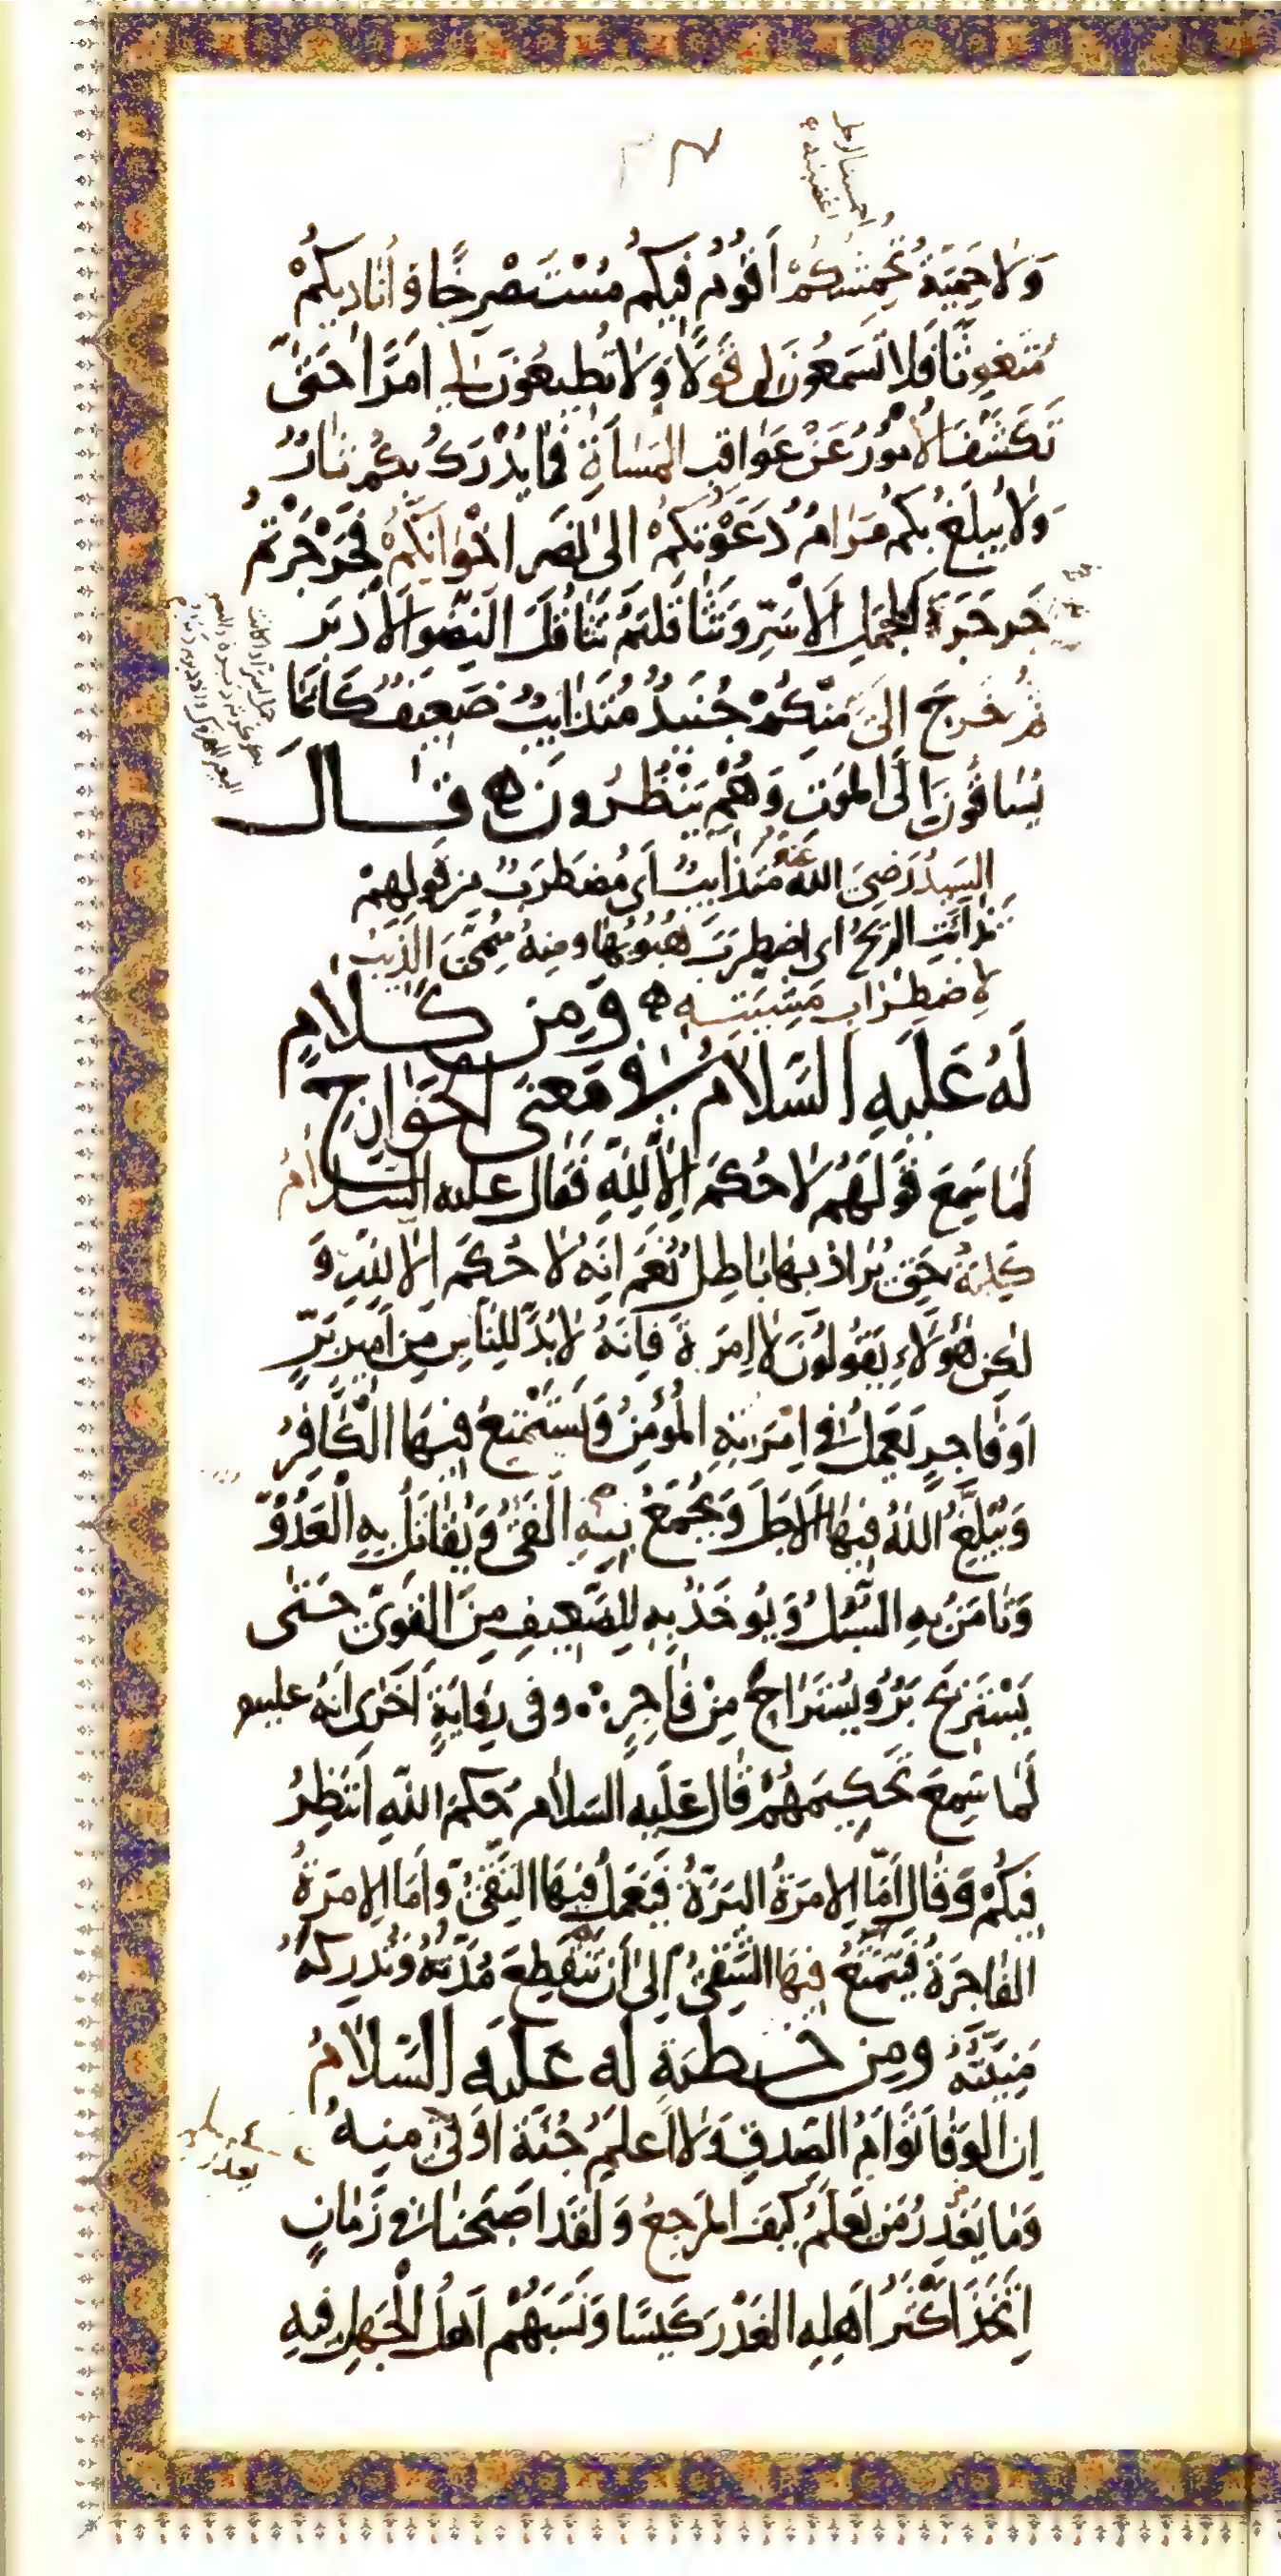 وَلَا حَمِيَّةُ تُحْمِشُكُمْ أَقُومُ فِيكُمْ مُسْتَصْرِخًا وَأُنَادِيكُمْ
مُتَغَوِّثًا فَلَا تَسْمَعُونَ لِي قَوْلًا وَلَا تُطِيعُونَ لِي أَمْرًا حَتَّى
تَكَشَّفَ الْأُمُورُ عَنْ عَوَاقِبِ الْمَسَاءَةِ فَمَا يُدْرَكُ بِكُمْ ثَارٌ
وَلَا يُبْلَغُ بِكُمْ مَرَامٌ دَعَوْتُكُمْ إِلَى نَصْرِ إِخْوَانِكُمْ فَجَرْجَرْتُمْ
جَرْجَرَةَ الْجَمَلِ الْأَسَرِّ وَتَثَاقَلْتُمْ تَثَاقُلَ النِّضْوِ الْأَدْبَرِ
ثُمَّ خَرَجَ إِلَيَّ مِنْكُمْ جُنَيْدٌ مُتَذَائِبٌ ضَعِيفٌ كَأَنَّمَا
يُسَاقُونَ إِلَى الْمَوْتِ وَهُمْ يَنْظُرُونَ ه قَالَ
السَّيِّدُ رَضِيَ اللهُ عَنْهُ مُتَذَائِبٌ أَي مُضْطَرِبٌ مِنْ قَولِهِمْ
تَذَائَبَتِ الرِّيحُ أي اضْطَرَبَ هُبُوبُهَا وَمِنْهُ سُمِّيَ الذِّيبُ
لِاضْطِرَابِ مِشْيَتِهِ ه وَمِنْ كَلَامٍ
لَهُ عَلَيْهِ السَّلَامُ فِي مَعْنَى الْخَوَارِجِ
لَمَّا سَمِعَ قَوْلَهُمْ لَا حُكْمَ إِلَّا لِلَّهِ فَقَالَ عليه السَّلَامُ
كَلِمَةُ حَقٍّ يُرَادُ بِهَا بَاطِلٌ نَعَمْ إِنَّهُ لَا حُكْمَ إِلَّا لِلَّهِ وَ
لَكِنْ هَؤُلَاءِ يَقُولُونَ لَا إِمْرَةَ فَإِنَّهُ لَا بُدَّ لِلنَّاسِ مِنْ أَمِيرٍ بَرٍّ
أَوْ فَاجِرٍ يَعْمَلُ فِي إِمْرَتِهِ الْمُؤْمِنُ وَيَسْتَمْتِعُ فِيهَا الْكَافِرُ
وَيُبَلِّغُ اللهُ فِيهَا الْأَجَلَ وَيُجْمَعُ بِهِ الْفَيْءُ وَيُقَاتَلُ بِهِ الْعَدُوُّ
وَتَأْمَنُ بِهِ السُّبُلُ وَيُوخَذُ بِهِ لِلضَّعِيفِ مِنَ الْقَوِيِّ حَتَّى
يَسْتَرِيحَ بَرٌّ وَيُسْتَرَاحَ مِنْ فَاجِرٍ ∴ وفي رِوَايَةٍ أُخْرَى أَنَّهُ عليه
لَمَّا سَمِعَ تَحْكِيمَهُمْ قَالَ عَلَيْهِ السَّلَامُ حُكْمَ اللهِ أَنْتَظِرُ
فِيكُمْ وَقَالَ أَمَّا الْإِمْرَةُ الْبَرَّةُ فَيَعْمَلُ فِيهَا التَّقِيُّ وَأَمَّا الْإِمْرَةُ
الْفَاجِرَةُ فَيَتَمَتَّعُ فِيهَا الشَّقِيُّ إِلَى أَنْ تَنْقَطِعَ مُدَّتُهُ وَتُدْرِكَهُ
مَنِيَّتُهُ وَمِنْ خطبَةٍ لَهُ عَلَيْهِ السَّلَامُ
إِنَّ الْوَفَا تَوْأَمُ الصِّدْقِ وَلَا أَعْلَمُ جُنَّةً أَوْقَى مِنْهُ
وَمَا يَغْدِرُ مَنْ يَعْلَمُ كَيْفَ الْمَرْجِعُ وَلَقَدْ أَصْبَحْنَا فِي زَمَانٍ
اتَّخَذَ أَكْثَرُ أَهْلِهِ الْغَدْرَ كَيْسًا وَنَسَبَهُمْ أَهْلُ الْجَهْلِ فِيهِ